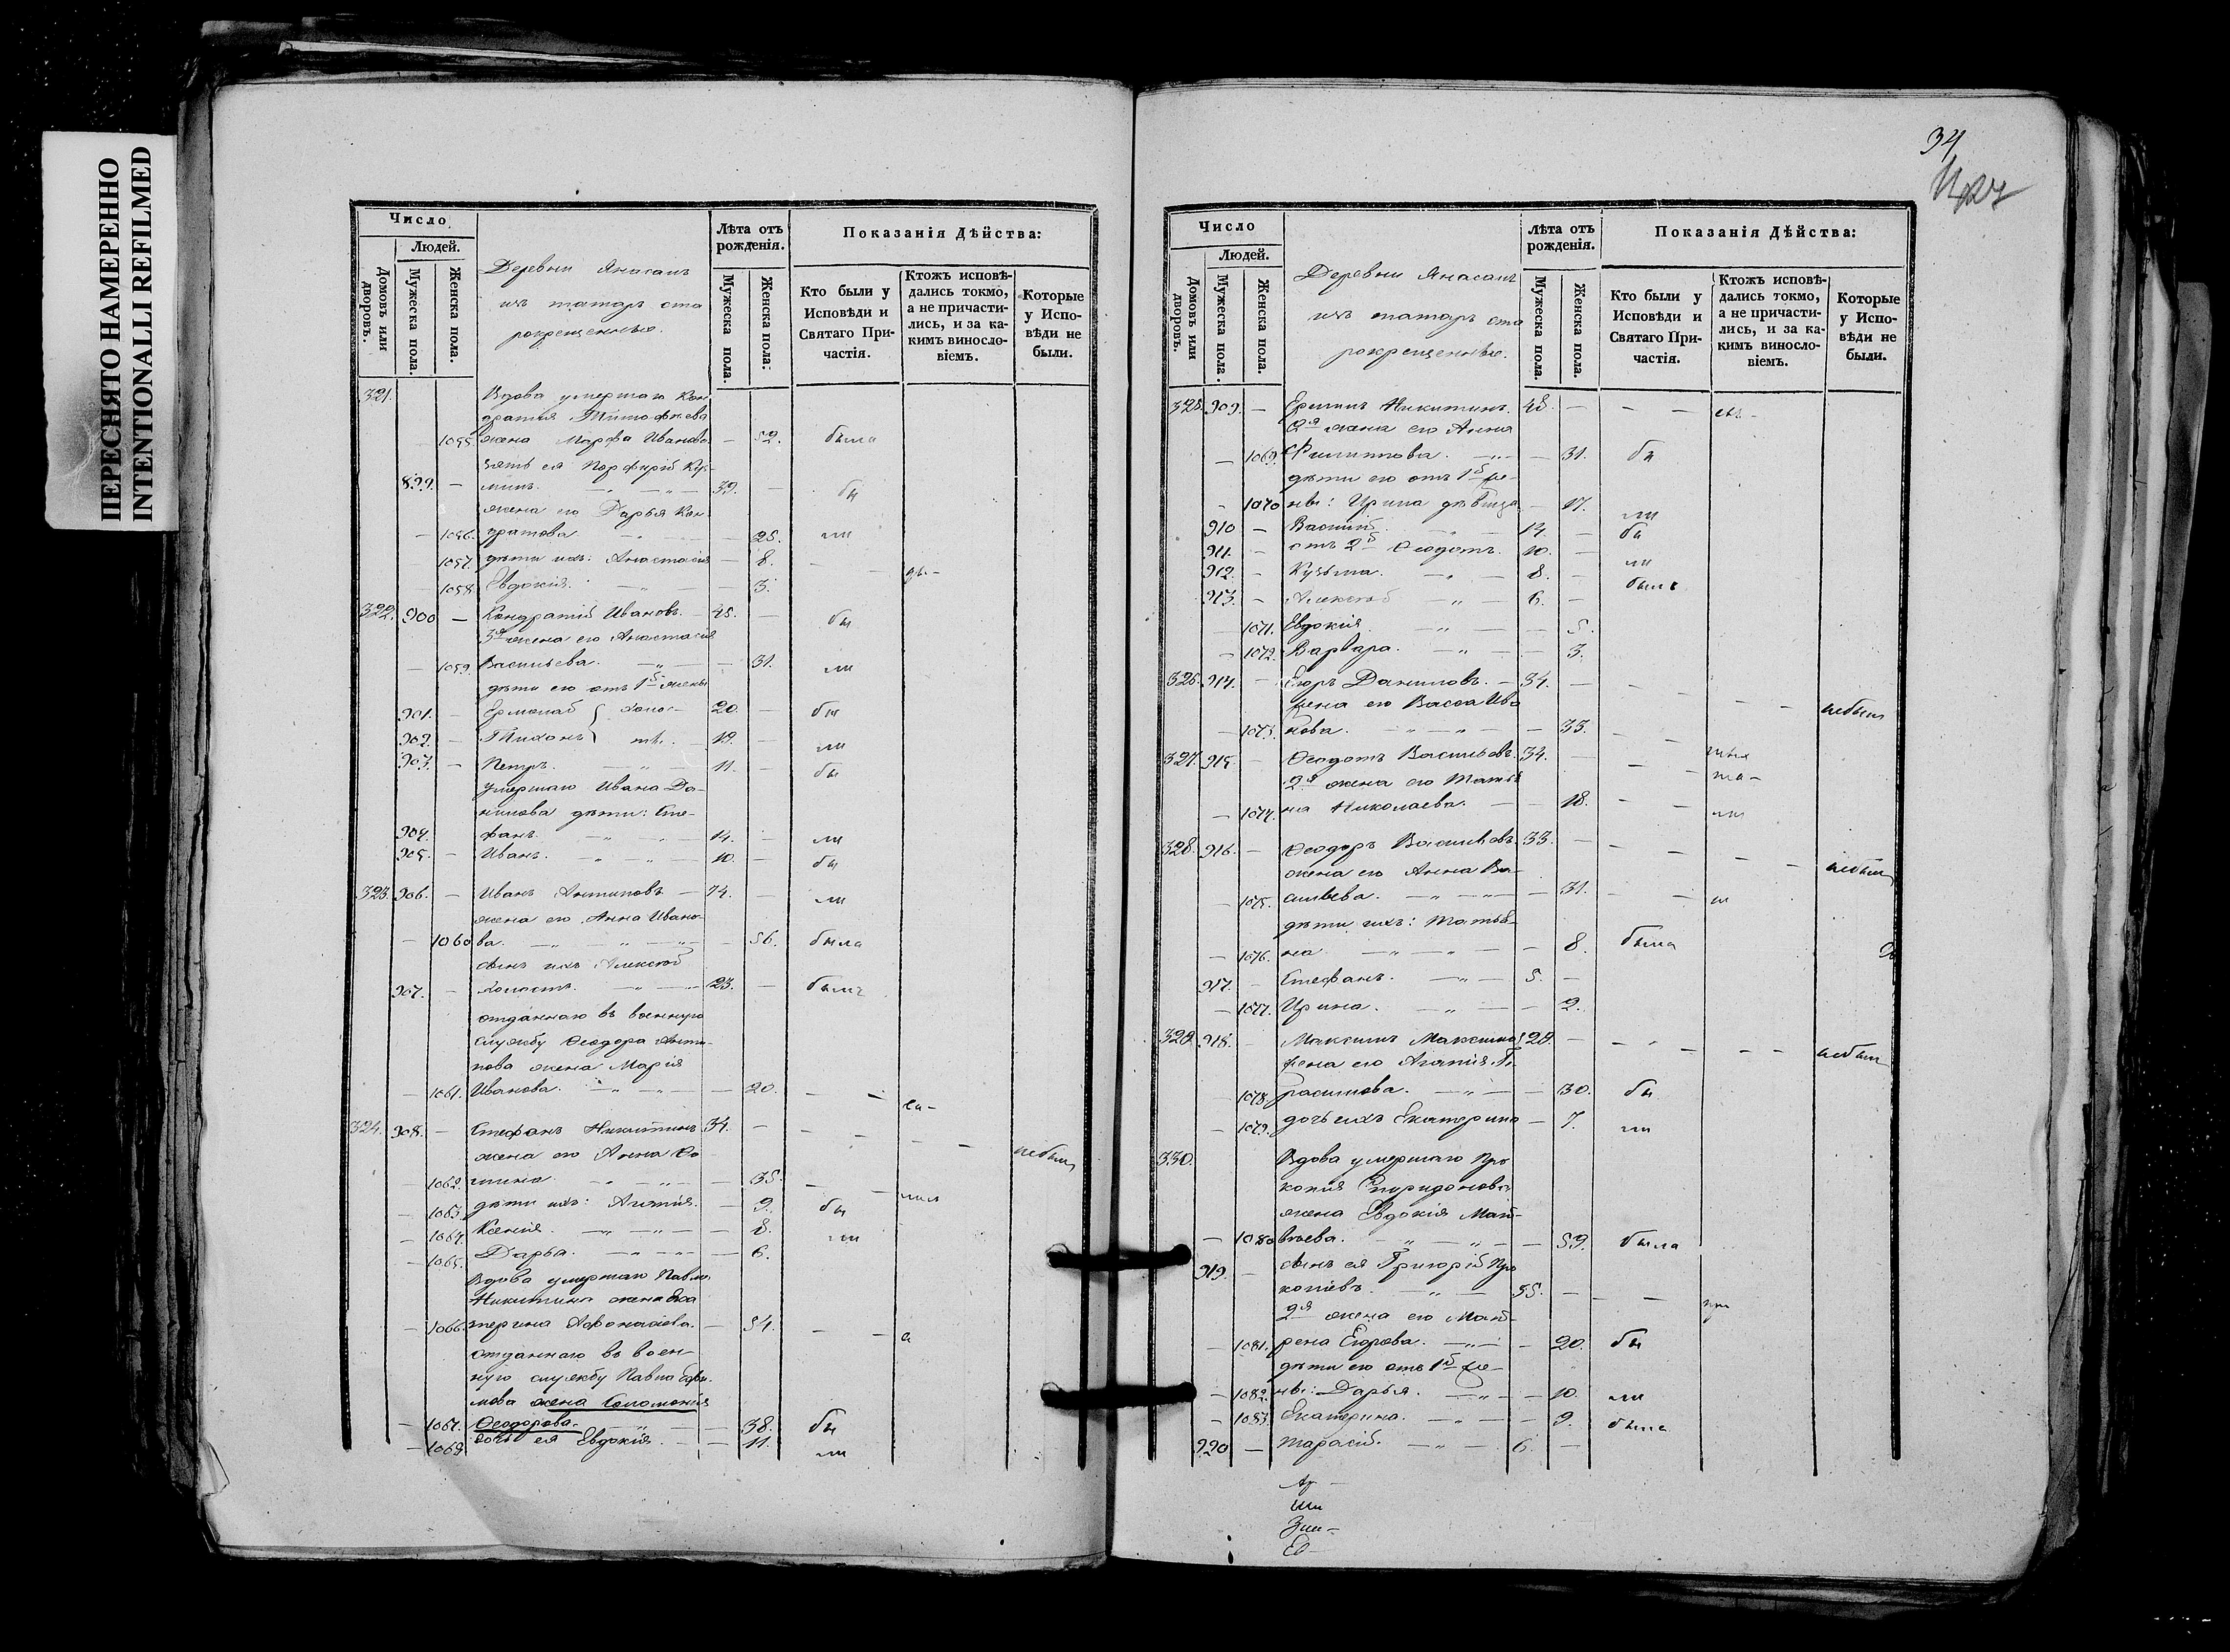 ПЕРЕСНЯТО НАМЕРЕННО
INTENTIONALLI REFILMED
Число
Людей.
Домовъ или дворовъ.
Мужеска пола.
Женска пола.
Деревни Янасалъ
изъ татаръ ста
рокрещенные.
Лѣта отъ рожденія.
Мужеска пола.
Женска пола.
Показанія Дѣйства:
Кто были у Исповѣди и Святаго Причастія.
Ктожъ исповѣдались токмо, а не причастились, и за какимъ винословіемъ.
Которые у Исповѣди не были.
321. Вдова умершаго Кон
дратія Тимофѣева
1055. жена Марфа Иванова — 52. была
зять ея Порфирій
899. — 39. — бы
жена его Дарья Кон
— 1056. дратова — 28. ли
1057. дѣти ихъ: Анастасія — 8. — —
1058. Евдокія. — 3.
322. 900 — Кондратій Ивановъ. — 48. — бы
3я жена его Анастасія
— 1059. Васильева. — 31. ли
дѣти его отъ 1й жены
901. — Ермолай холос- 20. — бы
902. — Тихонъ ты. — 19. — ли
903. — Петръ. 11. — бы
умершаго Ивана Да-
нилова дѣти: Сте-
904. фанъ. 14. — ли
905. — Иванъ. 10. — бы
323. 906. — Иванъ Антиповъ — 74. — ли
жена его Анна Ивано-
— 1060 ва. — 56. была
сынъ ихъ Алексей
907. — холостъ. 23. — былъ
отданнаго въ военную
службу Ѳеодора Анти-
пова жена Марія
— 1061. Иванова. — 20. — —
324. 908. — Стефанъ Никитинъ 34. — — —
жена его Анна
небыли
— 1062. — 35. —
— 1063. дѣти ихъ: Агафія. — 9. бы
— 1064. Ксенія. — 8. ли
— 1065. Дарья. — 6.
Вдова умершаго Павла
Никитина жена Ека
— 1066. терина Афонасіева. — 54. — —
отданнаго въ воен-
ную службу Павла
мова жена Соломонія
— 1067. Ѳеодорова. — 38. бы
— 1068. дочь ея Евдокія. — 11. ли
34
Число
Людей.
Домовъ или дворовъ.
Мужеска пола.
Женска пола.
Деревни Янасалъ
изъ татаръ ста
рокрещенные.
Лѣта отъ рожденія.
Мужеска пола.
Женска пола.
Показанія Дѣйства:
Кто были у Исповѣди и Святаго Причастія.
Ктожъ исповѣдались токмо, а не причастились, и за какимъ винословіемъ.
Которые у Исповѣди не были.
325. 909. — Никитинъ. 48. — — —
2я жена его Анна
— 1069. Филиппова. — 31. бы
дѣти его отъ 1й же-
— 1070 ны: Ирина дѣвица — 17. ли
910 — Василій 14. — бы
911. — отъ 2й Ѳеодотъ. 10. — ли
912. — Кузьма. 8. — были
913. — Алексей 6. —
1071. Евдокія — 5.
— 1072. Варвара. — 3.
326. 914. — Егоръ Даниловъ. — 34. — — —
жена его Васса Ива небыли
— 1073. нова. — 33. — —
327. 915. — Ѳеодотъ Васильевъ. 34. — — —
2я жена его Татья
— 1074. на Николаева. — 18. — — ли
328. 916. — Ѳеодоръ Васильевъ. 33. — — —
жена его Анна Ва- небыли
— 1075. сильева. — 31. — —
дѣти ихъ: Татья-
— 1076. на — 8. была
917. — Стефанъ. 5. —
— 1077. Ирина. — 2.
329. 918. — Максимъ Максимовъ 28. — — — небыли
жена его Агапія Ге-
— 1078. расимова. — 30. бы
— 1079. дочь ихъ Екатерина — 7. ли
330. Вдова умершаго Про
копія Спиридонова
жена Евдокія Мат-
— 1080 вѣева. — 59. была
919. — сынъ ея Григорій Про
копіевъ 35. — — —
2я жена его Мат-
— 1081. рена Егорова. — 20. бы
дѣти его отъ 1й же-
— 1082. ны: Дарья. — 10. ли
— 1083. Екатерина. — 9. была
920 — Тарасій. 6. —